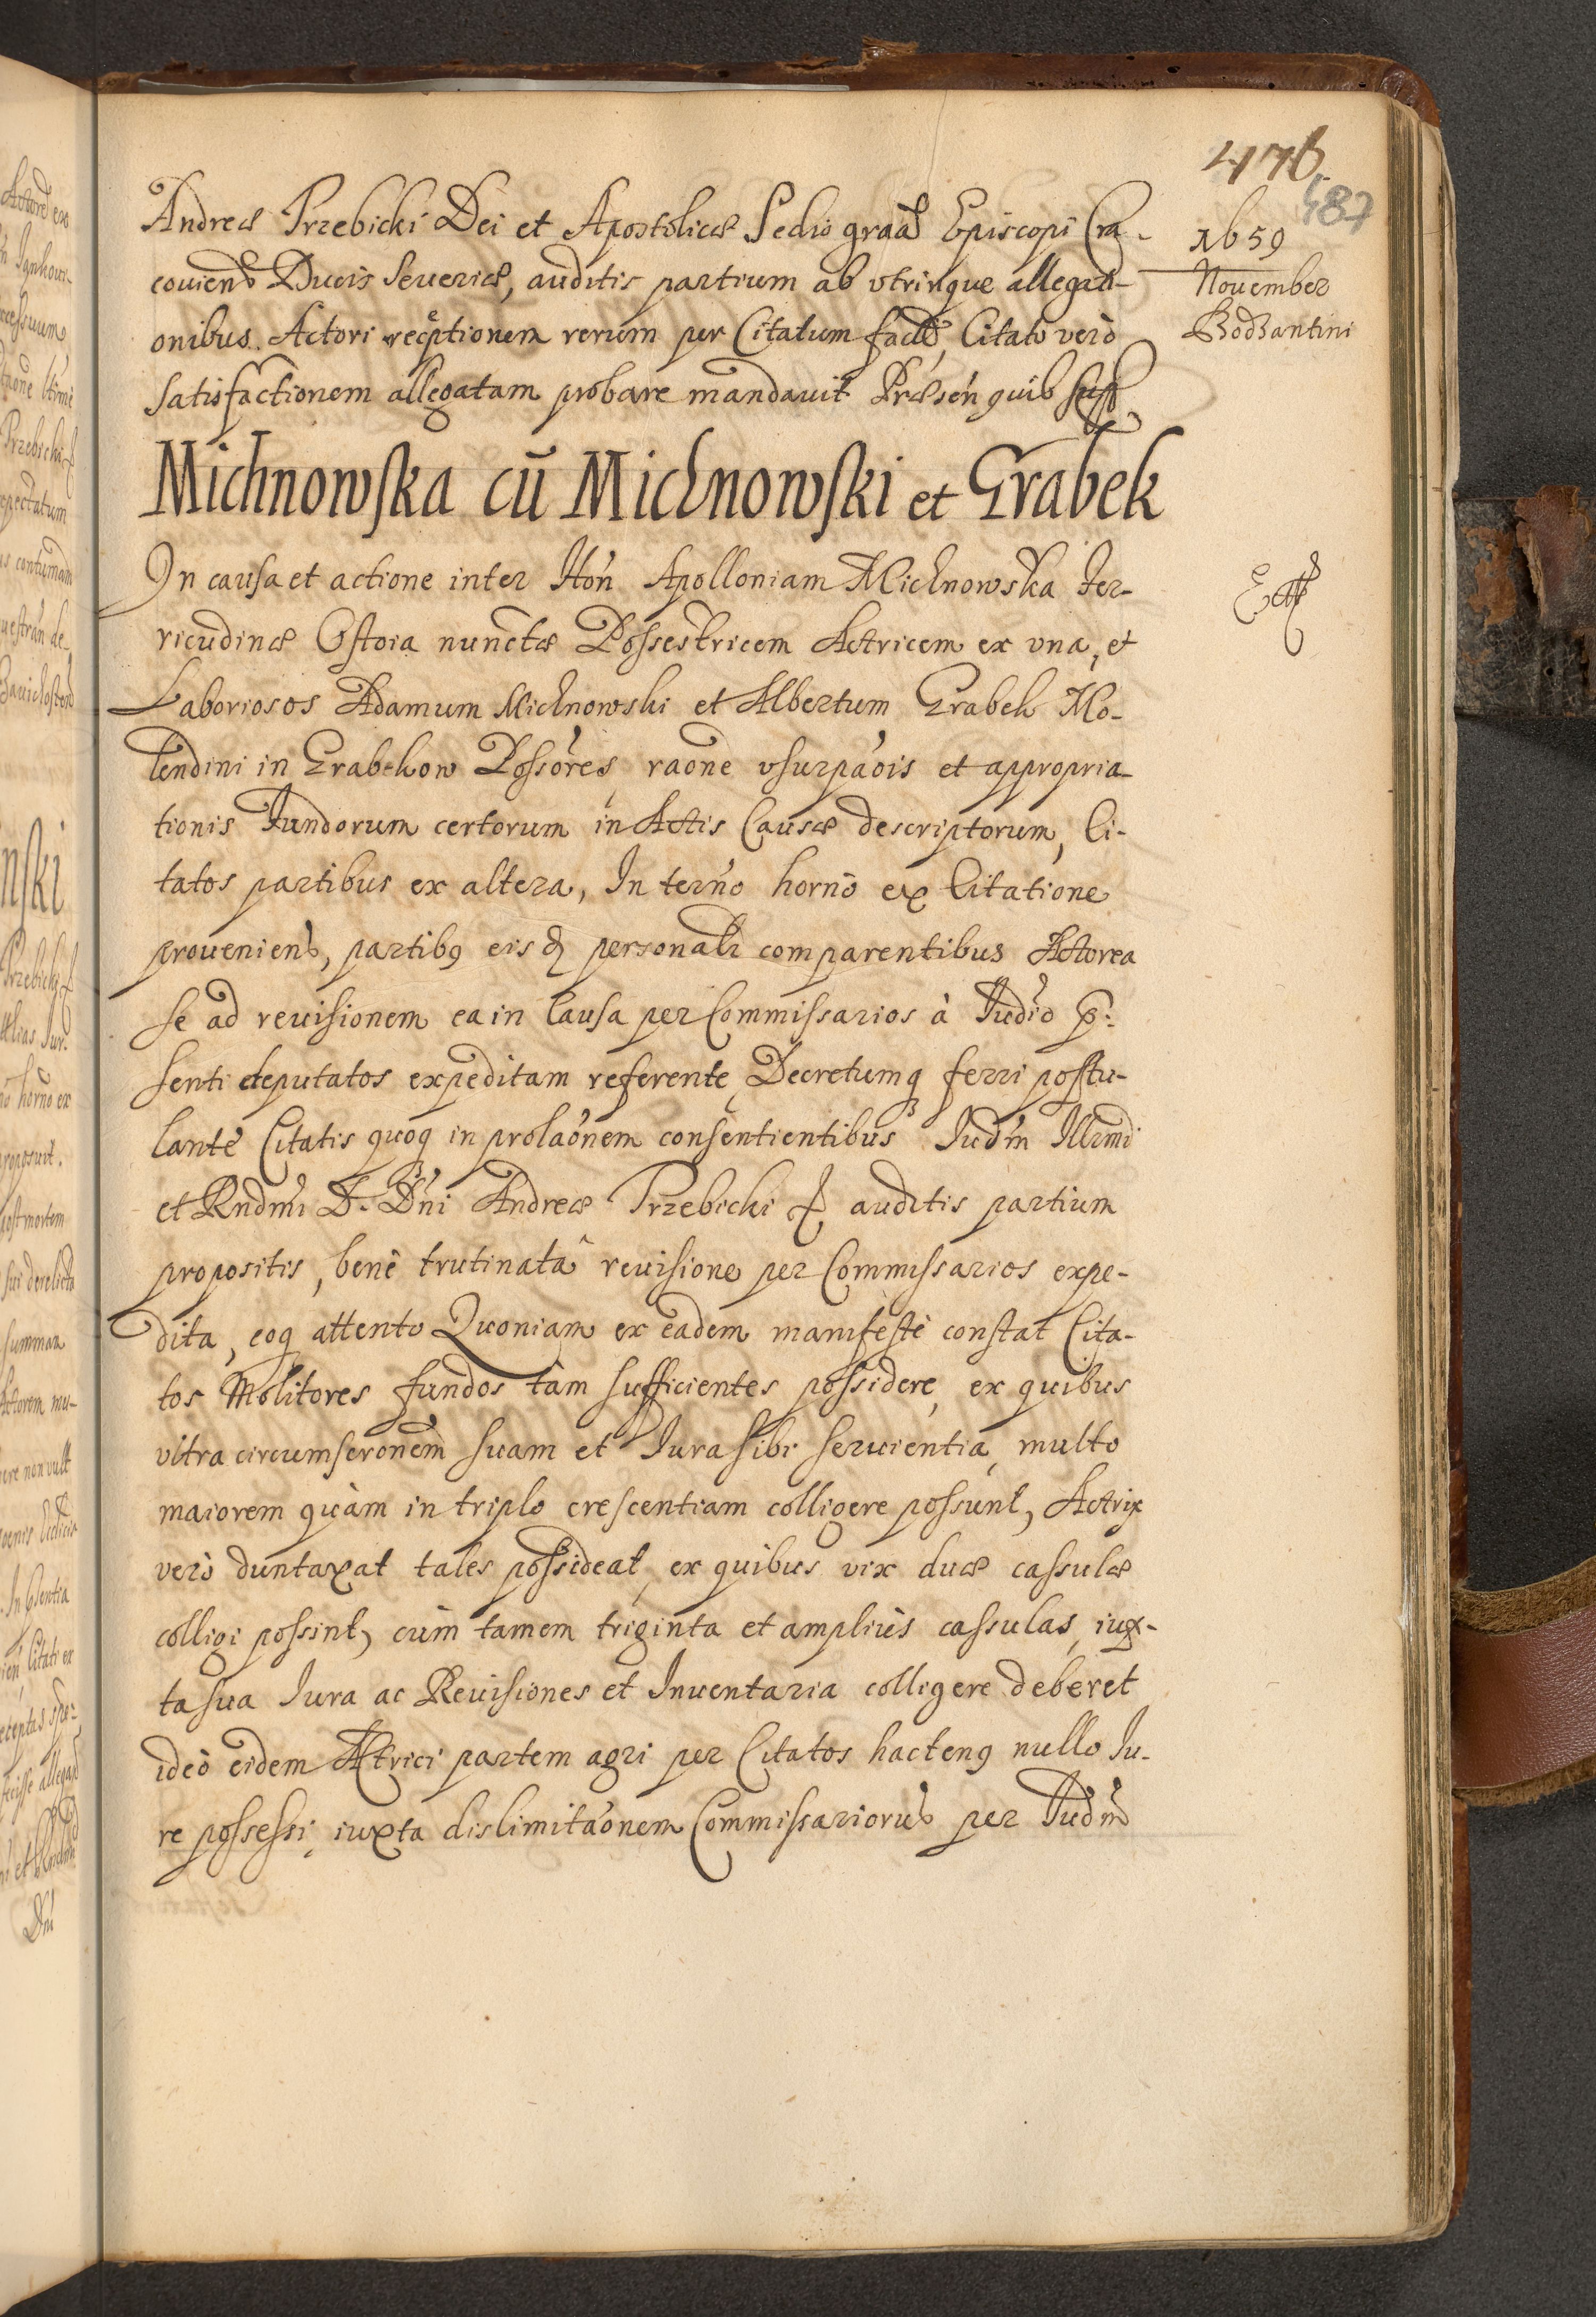 476
487
1659
Nouember
Bodzantini
Andreæ Trzebicki Dei et Apostolicæ Sedis graã Episcopi Cra-
couien Ducis Seueriæ, auditis partium ab vtrinque allegati-
onibus. Actori receptionem rerum per Citatum factã, Citato verò
satisfactionem allegatam probare mandauit Præsen quib sup
Michnowska cū Michnowski et Grabek
In causa et actione inter Hon Apolloniam Michnowska
ricudinæ Ostoia nunctæ Possestricem Actricem ex vna, et
Laboriosos Adamum Michnowski et Albertum Grabek Mo-
lendini in Grabekow Possores, raone vsurpaois et appropria-
tionis Fundorum certorum in Actis Causæ descriptorum, Ci-
tatos partibus ex altera, In terno horno ex Citatione
prouenien, partibq eisd personalr comparentibus Actorea
se ad reuisionem ea in Causa per Commissarios à Iudio p:
senti deputatos expeditam referente, Decretumq ferri postu-
lante Citatis quoq in prolaonem consentientibus Iudm Illmi
et Rndmi D. Dni Andreæ Trzebicki & auditis partium
propositis, benè trutinatâ reuisione per Commissarios expe-
dita, eoq attento Quoniam ex eadem manifestè constat Cita-
tos Molitores fundos tàm sufficientes possidere, ex quibus
vltra circumseronem suam et Iura sibi seruientia, multo
maiorem quàm in triplo crescentiam colligere possunt, Actrix
verò duntaxat tales possideat, ex quibus vix duæ cassulæ
colligi possint, cùm tamem triginta et ampliùs cassulas, iux-
ta sua Iura ac Reuisiones et Inuentaria colligere deberet
ideò eidem Actrici partem agri per Citatos hactenq nullo Iu-
re possessi, iuxta dislimitaonem Commissariorū per Iudm